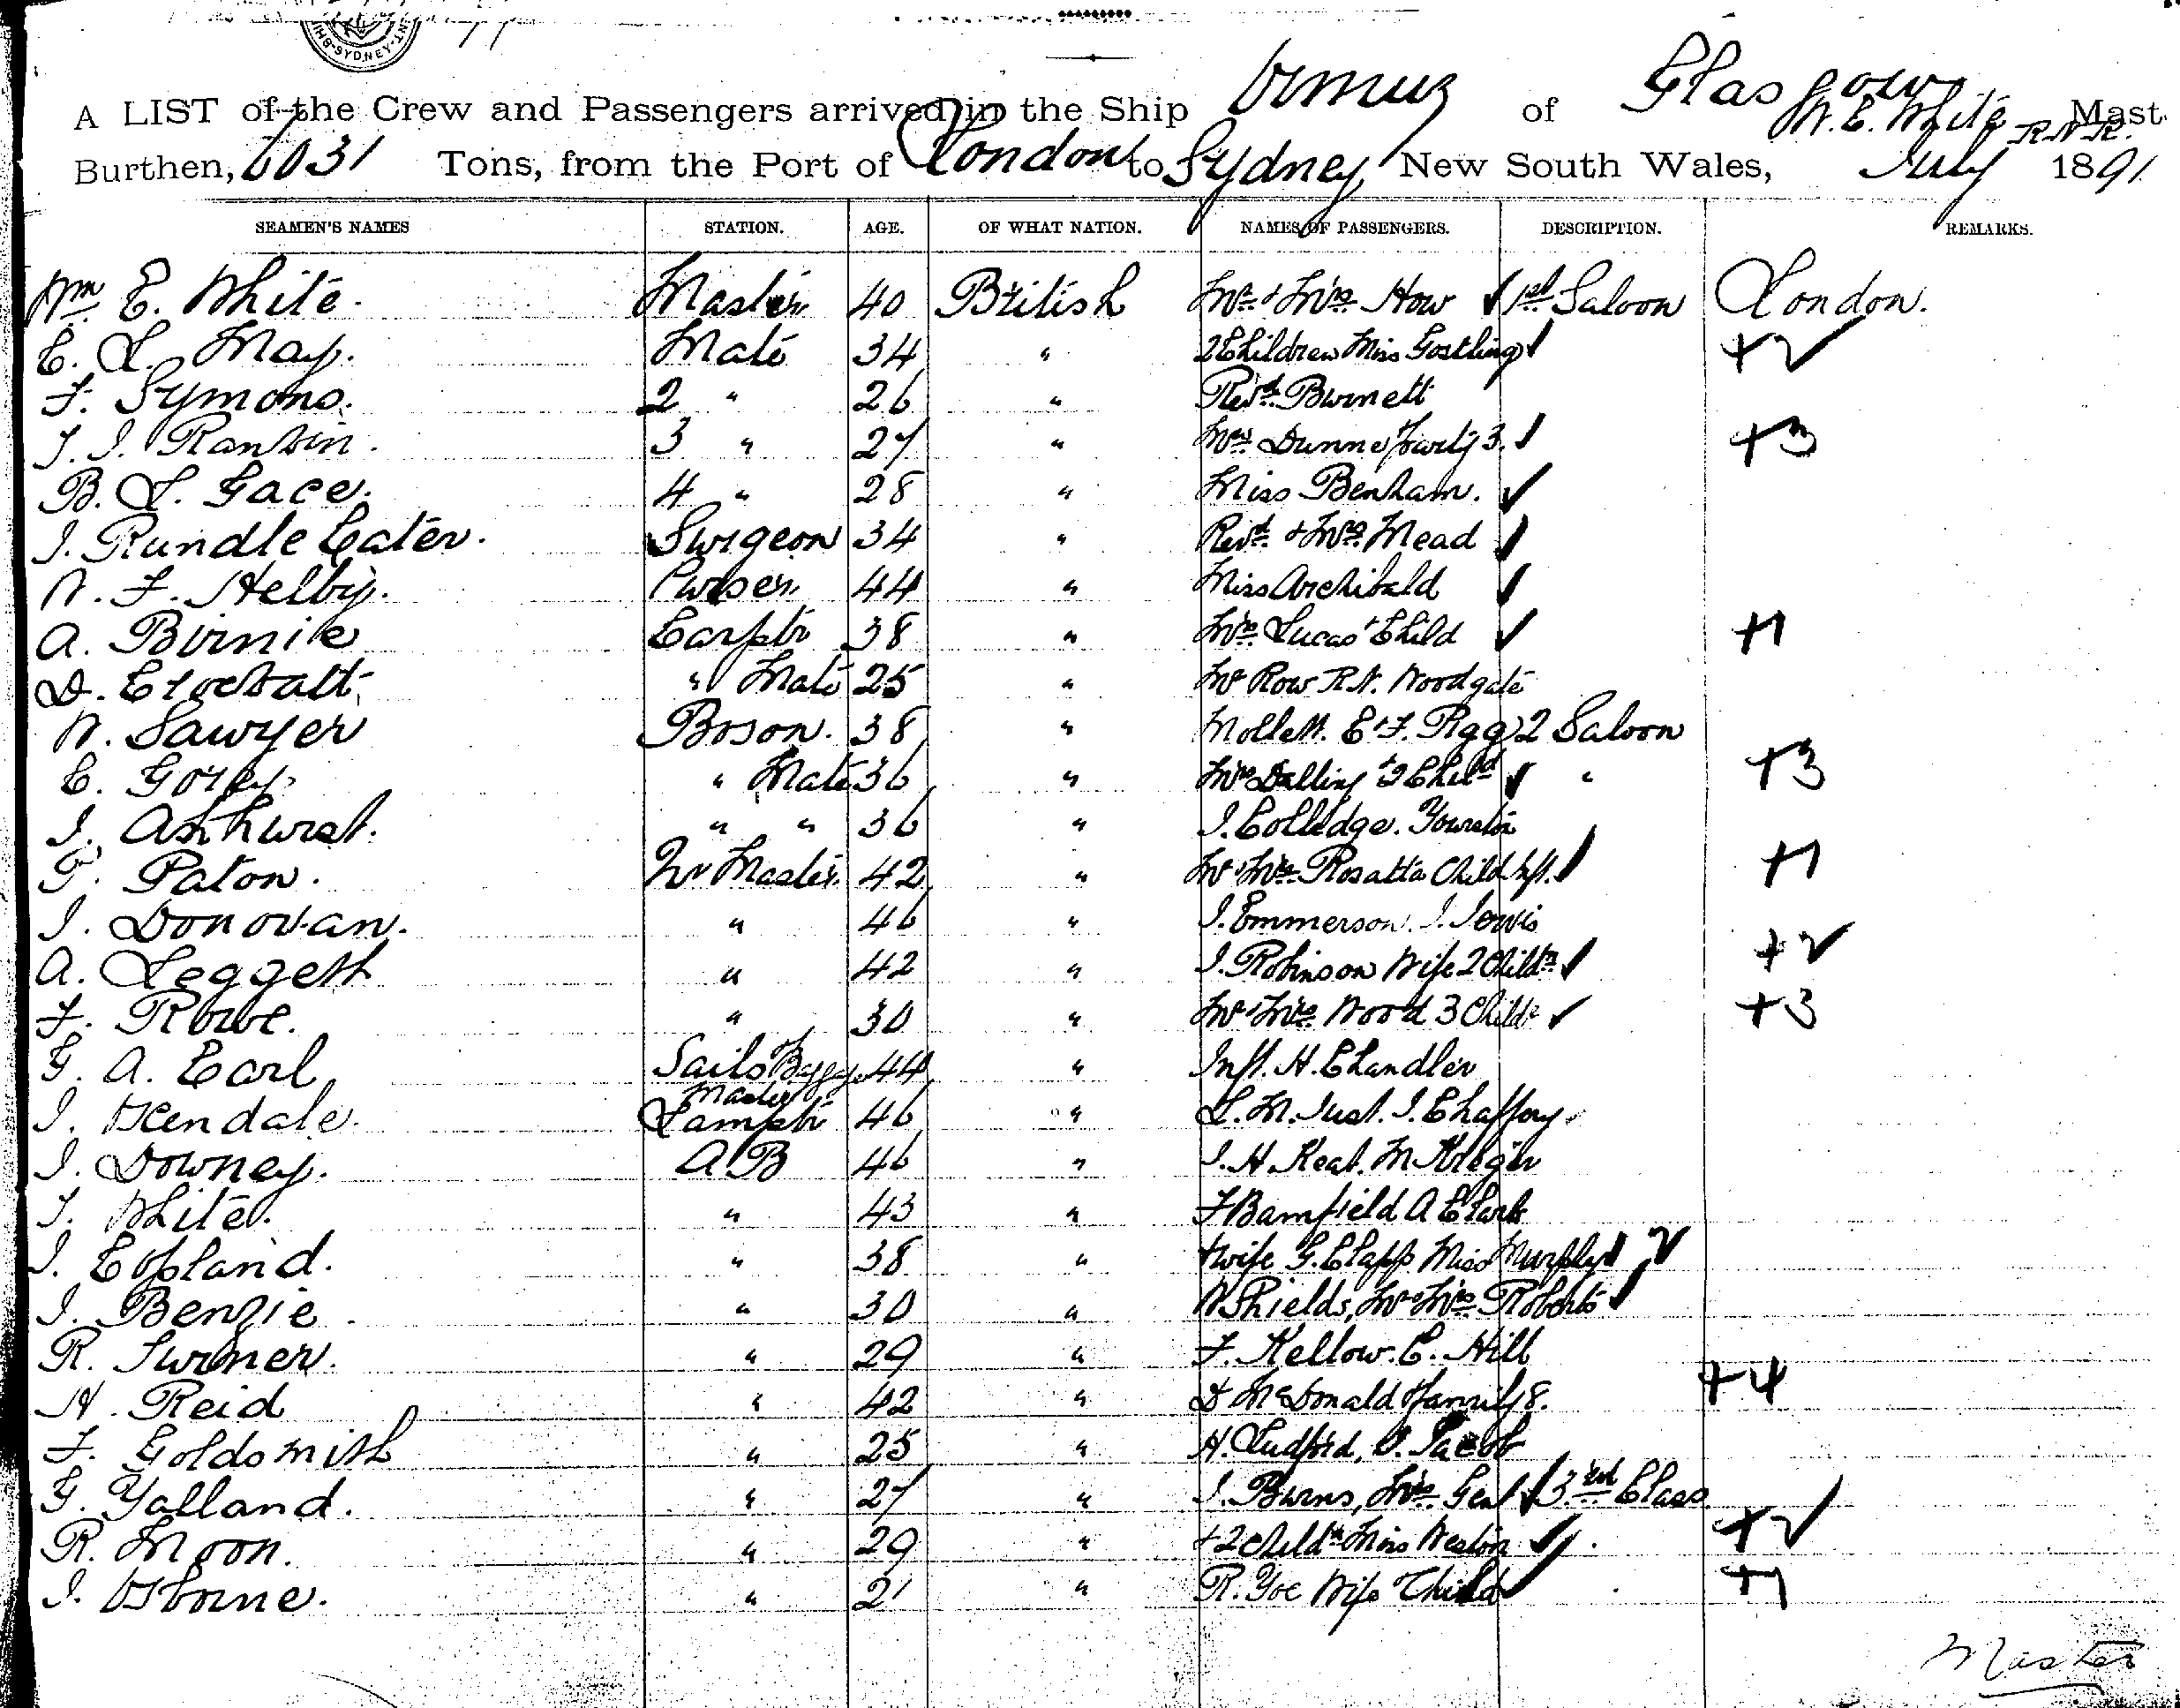 SYDNEY
A LIST of the Crew and Passengers arrived in the Ship Ormuz of Glasgow W. E. White R.N.R. Mast
Burthen, 6031 Tons, from the Port of London to Sydney, New South Wales, July 1891
SEAMEN'S NAMES STATION. AGE. OF WHAT NATION. NAMES OF PASSENGERS. DESCRIPTION. REMARKS.
Wm E. White. Master 40 British Mr & Mrs How 1st Saloon London.
E. L. May. Mate 34 " 2 Children Miss Gostling +2
F. Symons. 2 " 26 " Revd. Burnett
3 " 27 " Mrs Dunne family 3. +3
B. L. Gace. 4 " 28 " Miss Benham.
J. Rundle Cater. Surgeon 34 " Revd. & Mrs. Mead
W. F. Helby. Purser 44 " Miss Archibald
A. Birnie Carptr 38 " Mrs Lucas & Child +1
D. " Mate 25 " Mr Row R.N. Woodgate
W. Sawyer Boson. 38 " Mollett. E & F. Pigg 2 Saloon
E. Gorey. " Mate 36 " Mrs Dalling & 2 Child " +3
J. Ashurst. " " 36 " J. Colledge.
Paton. Qr Master. 42 " Mr & Mrs Rosatta Child Inft. +1
J. Donovan. " 46 " J. Emmerson. J. Jervis
A. Leggett " 42 " J. Robinson Wife 2 Childn +2
F. Rowe. " 30 " Mr & Mrs. Wood 3 Childn +3
G. A. Earl Sails & Baggage Master 44 " Inft. H. Chandler
J. Kendale. Lamptr 46 " L. M. Just. J. Chaffey.
J. Downey. A B 46 " J. H. Keat. M
T. White. " 43 " F Bamfield A Clark
J. Copland. " 38 " & wife G. Clapp Miss Murphy 2
J. Benzie. " 30 " W Shields, Mr & Mrs Roberts
R. Turner. " 29 " F. Kellow. C. Hill
H. Reid " 42 " D McDonald & family 8. +4
F. Goldsmith " 25 " H. Ludford, O. Jacob
G. Yolland. " 27 " J. Burns, Mrs. Geal 3rd Class
R. Moon. " 29 " & 2 childn Miss Weston +2
J. Osborne. " 21 " R. Yoe Wife & Child +1
Master